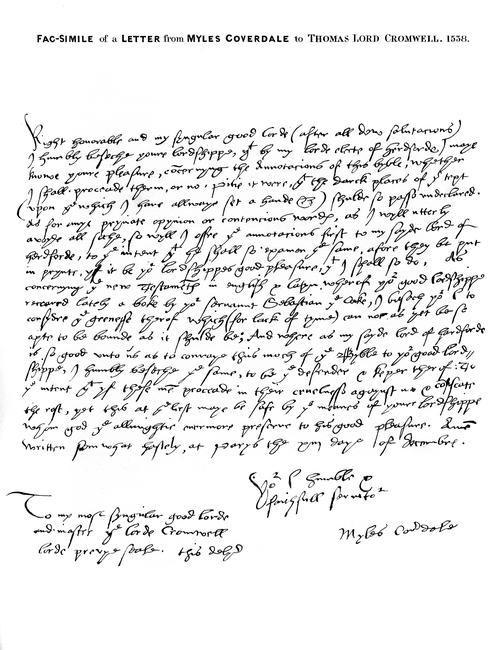 FAC-SIMILE of a LETTER from MYLES COVERDALE to THOMAS LORD CROMWELL. 1538.
Right honorable and my syngular good lorde (after all dew salutacions)
I humbly beseche youre lordshippe, yt by my lorde electe of herdforde, I maye
knowe youre pleasure, cōcernyng the annotacions of this bible, whether
I shall proceade therin, or no. Pitie it were, yt the darck places of ye text
(vpon ye which I have allwaye set a hande) shulde so passe undeclared.
As for eny pryuate opynion or contencious wordes, as I wyll utterly
avoyde all soche, so wyll I offre ye annotacions first to my sayde lord of
herdforde, to ye intent yt he shall so examen ye same, afore they be put
in prynte, yf it be yor lordshippes good pleasure, yt I shall so do. As
concernyng ye new Testamēts in english & latyn, wherof yor good lordshippe
receaved lately a boke by yor servaunt Sebastian ye Cooke, I besech yor l. to
consydre ye grenesse therof, which (for lack of tyme) can not as yet be so
apte to be bounde as it shulde be; And where as my sayde lord of herdforde
is so good unto us as to convaye this moch of ye Bible to yor good lord-
shippe, I humbly beseche ye same, to be ye defender & keper therof: To
ye intent yt yf these mē proceade in their cruelnesse agaynst us & cōfiscate
the rest, yet this at ye lest maye be safe by ye meanes of youre lordshippe
whom god ye allmightie evermore preserve to his good pleasure. Amē
Written som what hastely, at Parys the daye of decembre.
Yor l. humble &
faithfull servitor
Myles Coverdale
To my most syngular good lorde
and master ye lorde Cromwell
lorde prevye seale. this delyd